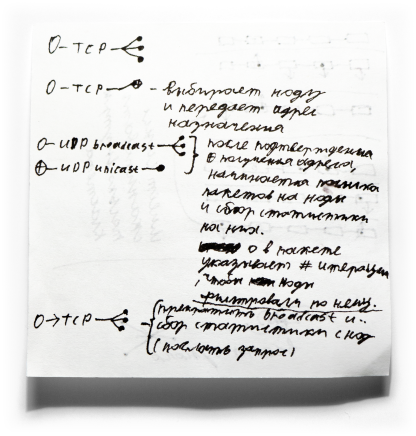 O-TCP
O-TCP - выбирает ноду
и передает адрес
назначения
O-UDP broadcast
⊕-UDP unicast
после подтверждения
о получении адреса,
начинается посылка
пакетов на ноды
и сбор статистики
на них.
O в пакете
указывает # итерации
, чтобы ноды
фильтровали по нему.
O→TCP - прекратить broadcast и
сбор статистики с нод
(послать запрос)